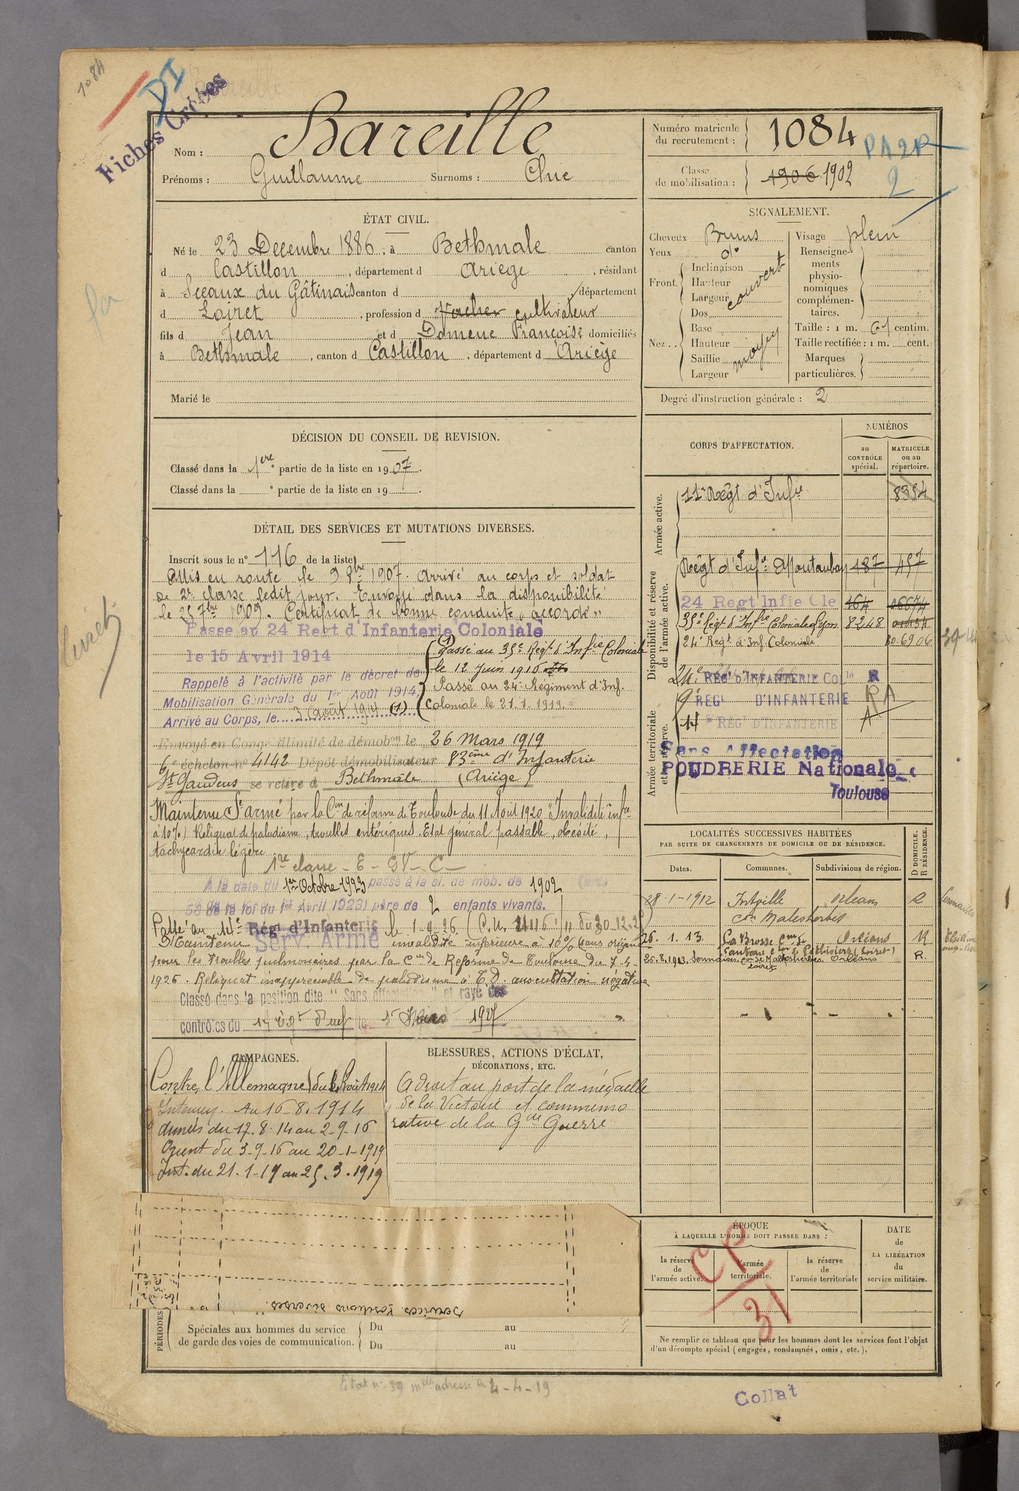 1084
DI
Fiches Créées
Nom : Bareille
Prénoms : Guillaume Surnoms : Chic
Numéro matricule du recrutement : 1084
PA2R
2
Classe de mobilisation : 1906 1902
ÉTAT CIVIL.
Né le 23 Décembre 1886, à Bethmale canton
d Castillon, département d Ariège, résidant
à Sceaux du Gâtinais canton d département
d Loiret, profession d Vacher cultivateur
fils d Jean et d Domenc Françoise domiciliés
à Bethmale, canton d Castillon, département d Ariège
Marié le
SIGNALEMENT.
Cheveux Bruns
Yeux do
Front. Inclinaison
Hauteur
Largeur
couvert
Nez.. Dos
Base
Hauteur
Saillie
Largeur
moyen
Visage plein
Renseignements physionomiques complémentaires.
Taille : 1 m. 61 centim.
Taille rectifiée : 1 m. cent.
Marques particulières.
Degré d'instruction générale : 2
DÉCISION DU CONSEIL DE REVISION.
Classé dans la 1ère partie de la liste en 1907.
Classé dans la e partie de la liste en 19 .
DÉTAIL DES SERVICES ET MUTATIONS DIVERSES.
Inscrit sous le n° 116 de la liste
Mis en route le 9 8bre 1907. Arrivé au corps et soldat
de 2e classe ledit jour. Envoyé dans la disponibilité
le 25 7bre 1909. Certificat de bonne conduite "accordé"
Passé au 24 Regt d'Infanterie Coloniale
le 15 Avril 1914
Rappelé à l'activité par le décret de
Mobilisation Générale du 1er Août 1914
Arrivé au Corps, le 3 août 1914 (1)
(1) Passé au 35e Régt d'Infie Coloniale
le 12 Juin 1916
Passé au 24e Régiment d'Inf.
Coloniale le 21.1.1919.
Envoyé en Congé illimité de démobon le 26 Mars 1919
6e échelon n° 4142 Dépôt démobilisateur 83ème d'Infanterie
St Gaudens se retire à Bethmale (Ariège)
Maintenu St armé par la Con de réforme de Toulouse du 11 Août 1920 Invalidité infre
à 10%, Reliquat de paludisme, troubles entériques, Etat général passable, obésité,
tachycardie légère
1re classe - E - SV - C -
A la date du 1er Octobre 1923 passé à la cl. de mob. de 1902
58 de la loi du 1er Avril 1923) père de 2 enfants vivants.
Passé au 14e Régt d'Infanterie le 1-9-26.
Maintenu Serv. Armé invalidité inférieure à 10% sans
pour les troubles pulmonaires par la Con de Réforme de Toulouse du 7-4-
1926. Reliquat inappréciable de paludisme à T.D. auscultation négative
Classé dans la position dite "Sans affectation" et rayé des
contrôles du 14 Régt d'Inf le 1er Mars 1927
livret
CORPS D'AFFECTATION.
NUMÉROS
au CONTRÔLE spécial.
MATRICULE ou au répertoire.
Armée active.
11e Régt d'Infie 8354
Disponibilité et réserve de l'armée active.
Régt d'Infie Montauban 187 457
24 Regt Infie Cle 164 06674
35e Régt d'Infie Coloniale Lyon 8248
24e Régt d'Inf Coloniale 206906
Armée territoriale et réserve.
24e RÉGt D'INFANTERIE Cole R
9e RÉGt D'INFANTERIE RA
14e RÉGt D'INFANTERIE A
Sans Affectation
POUDRERIE Nationale
Toulouse
LOCALITÉS SUCCESSIVES HABITÉES
PAR SUITE DE CHANGEMENTS DE DOMICILE OU DE RÉSIDENCE.
Dates. Communes. Subdivisions de région. D DOMICILE. R RÉSIDENCE.
28-1-1912 Intville Orléans R
Con Malesherbes
26.1.13. La Brosse Cne de Orléans
25.8.1913. Orléans R.
CAMPAGNES.
Contre l'Allemagne du 3 Août 1914
Intérieur. Au 16-8.1914
Armées du 17.8.14 au 2-9-16
Orient du 3-9-16 au 20-1-1919
Int. du 21.1-19 au 25.3.1919
BLESSURES, ACTIONS D'ÉCLAT,
DÉCORATIONS, ETC.
A droit au port de la médaille
de la Victoire et commémo
rative de la Gde Guerre
Services Positions diverses.
PÉRIODES
Spéciales aux hommes du service
de garde des voies de communication.
Du au
Du au
ÉPOQUE
À LAQUELLE L'HOMME DOIT PASSER DANS :
la réserve de l'armée active.
l'armée territoriale.
la réserve de l'armée territoriale
DATE de LA LIBÉRATION du service militaire.
CP
31
Ne remplir ce tableau que pour les hommes dont les services font l'objet
d'un décompte spécial (engagés, condamnés, omis, etc.).
Collat